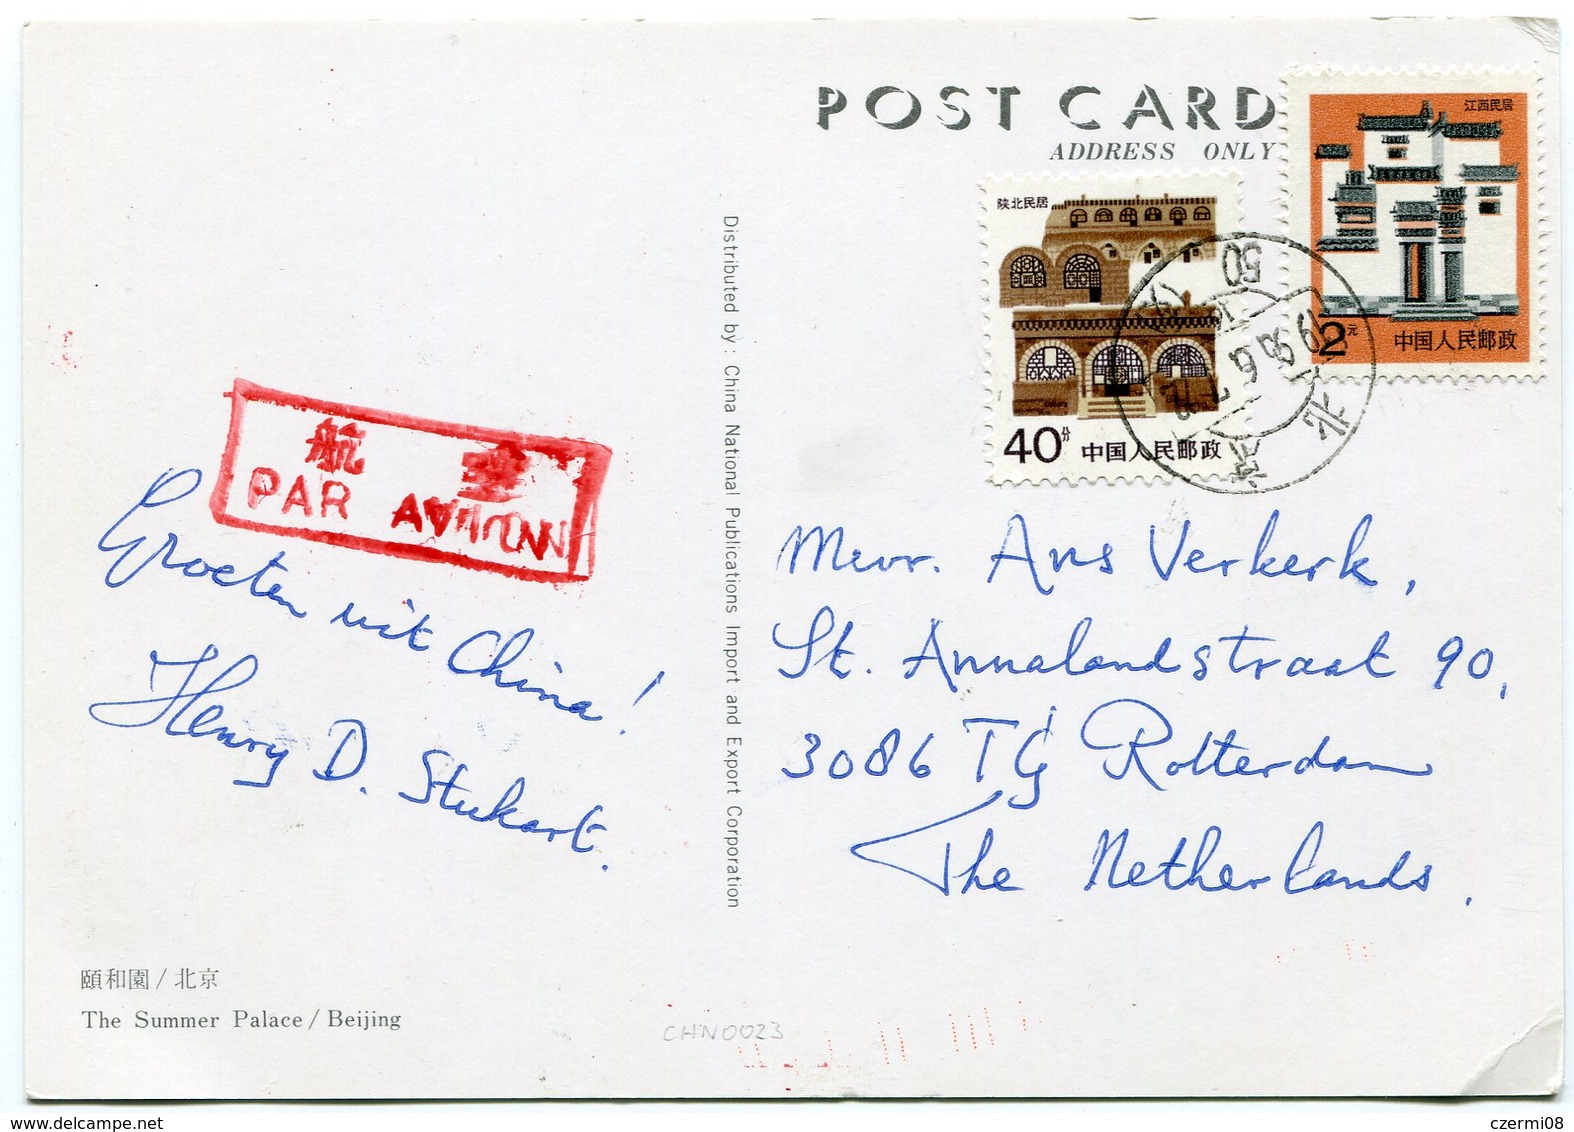 POST CARD
ADDRESS ONLY
江西民居
2元
中国人民邮政
陕北民居
40分
中国人民邮政
北京
50
航空
PAR AVION
Groeten uit China!
Henry D. Stukart.
Distributed by: China National Publications Import and Export Corporation
Mevr. Ans Verkerk,
St. Annalandstraat 90,
3086 TG Rotterdam
The Netherlands.
頤和園/北京
The Summer Palace/Beijing
CHN0023
www.delcampe.net
czermi08